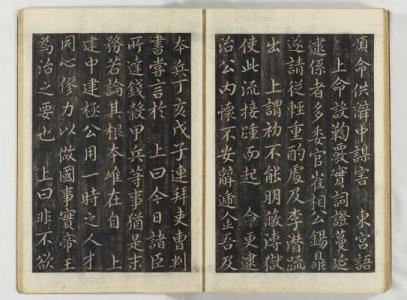 須命供辭中謀害 東宮語
上命設鞫覈實詞證蔓延
逮係者多委官崔相公錫鼎
遂請從輕重酌處及李潛疏
出 上謂初不能明覈獄
使此流接踵而起 命更逮
治公內懷不安辭遞金吾及
本兵丁亥戊子連拜吏曹判
書嘗言於 上曰今日諸臣
所達錢穀甲兵等事猶是末
務若論其根本唯在自 上
建中建極公用一時之人才
同心僇力以做國事實帝王
為治之要也 上曰非不欲